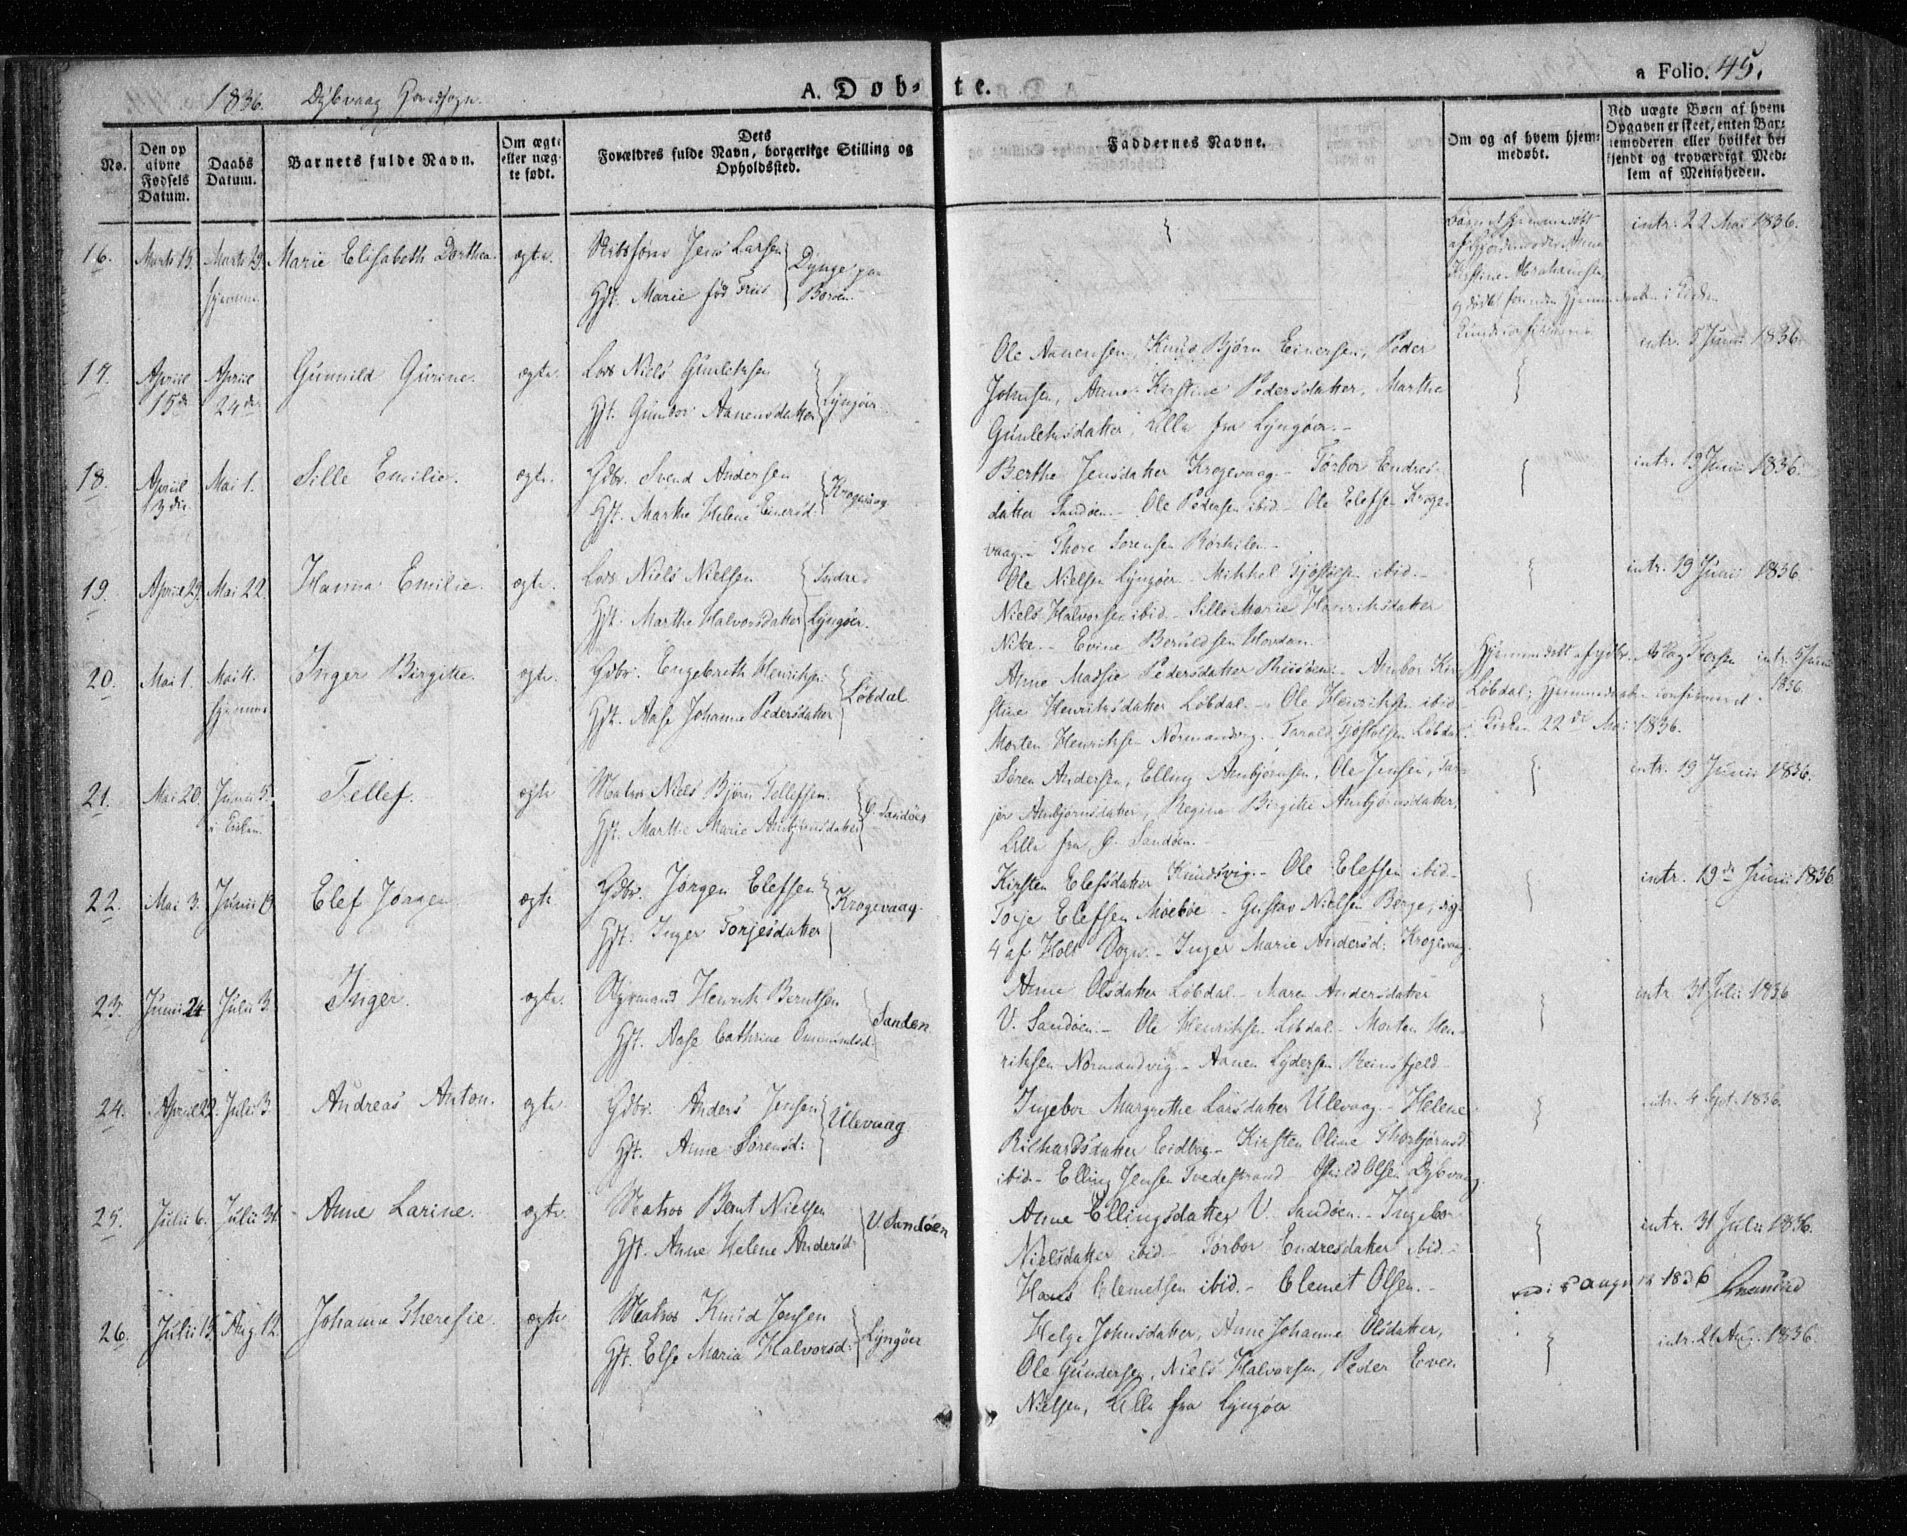 1836. Dybvaag Hovedsogn.
A. Døbte.
a Folio. 45.
No.
Den opgivne Fødsels Datum.
Daabs Datum.
Barnets fulde Navn.
Om ægte eller uægte født.
Dets Forældres fulde Navn, borgerlige Stilling og Opholdssted.
Faddernes Navne.
Om og af hvem hjemmedøbt.
Ved uægte Børn af hvem Opgaven er skeet, enten Barnemoderen eller hvilket bekjendt og troværdigt Medlem af Menigheden.
16. Marts 15. Marts 23. hjemme Marie Elisabeth Dorthea. ægte. Skibsfører Jens Larsen
Gft. Marie fød Friis
Dynge paa Borøen
intr. 22 Mai 1836.
17. Apriil 15de Apriil 24de Gunnild Gurine. ægte. Lods Niels Gunleksen
Gft. Gunbor Aanensdatter
Lyngøer
Ole Aanensen, Knud Bjørn Einersen, Peder
Johnsen, Anne Kirstine Pedersdatter, Marthe
Gunleksdatter, Alle fra Lyngøer.-
intr. 5 Junii 1836.
18. Apriil 3die Mai 1. Sille Emilie. ægte. Gdbr. Svend Andersen
Gft. Marthe Helene Einersd.
Krogevaag
Berthe Jensdatter Krogevaag - Torbor Endres-
datter Sandøen - Ole Pedersen ibid - Ole Elefsen Kroge-
vaag - Thore Sørensen
intr. 19 Junii 1836.
19. Apriil 29. Mai 22. Hanna Emilie. ægte. Lods Niels Nielsen
Gft. Marthe Halvorsdatter
Indre Lyngøer.
Ole Nielsen Lyngøer - Mikkel Tjøstolsen ibid.-
Niels Halvorsen ibid - Sille Marie Henriksdatter
Evine Beruldsen
intr. 19 Junii 1836.
20. Mai 1. Mai 4. hjemme Inger Birgitte. ægte. Gdbr. Engebreth Henriksen
Gft. Aase Johanne Pedersdatter
Løbdal
Anne Madsie Pedersdatter Riisøen - Anbor Kir-
stine Henriksdatter Løbdal - Ole Henriksen ibid
Morten Henriksen Normandvig - Tarald Tjøstolsen Løbdal.
Hjemmedøbt af gdbr. Aslag
Løbdal; Hjemmedaaben confirmeret
i Kirken 22de Mai 1836.
intr. 5 Junii 1836.
21. Mai 20. Junii 5. i Kirken Tellef. ægte Matros Niels Bjørn Tellefsen
Gft. Marthe Marie Anbjørnsdatter
Ø. Sandøen
Søren Andersen, Elling Anbjørnsen, Ole Jensen, Tar-
jer Anbjørnsdatter, Regine Birgitte Anbjørnsdatter,
Alle fra Ø. Sandøen.-
intr. 19 Junii 1836.
22. Mai 3. Junii Elef Jørgen ægte Gdbr. Jørgen Elefsen
Gft. Inger Torjesdatter
Krogevaag
Kirsten Elefsdatter Knudsvig - Ole Elefsen ibid -
Torje Elefsen Moebøe - Gustav Nielsen Borge,
4 af Holt Sogn - Inger Marie Andersd: Krogevaag.
intr. 19de Junii 1836.
23. Junii 24 Julii 3. Inger. ægte. Styrmand Henrik Berntsen
Gft. Aase Cathrine Ommundsd:
Sandøen
Anne Olsdatter Løbdal - Maren Andersdatter
V. Sandøen - Ole Henriksen Løbdal - Morten Hen-
riksen Normandvig - Aanen Lydersen Reinsfjeld -
intr. 31 Julii 1836
24. Apriil 22. Julii 3. Andreas Anton. ægte. Gdbr. Anders Jensen
Gft. Anne Sørensd:
Ulevaag
Ingebor Margrethe Larsdatter Ulevaag - Helene
Rikhardsdatter Eidbo - Kirsten Oline Thorbjørnsd
ibid - Elling Jensen Tvedestrand - Olsen Dybvaag.
intr. 4 Spt. 1836.
25. Julii 6. Julii 31. Anne Larine. ægte. Matros Bernt Nielsen
Gft. Anne Helene Andersd:
V. Sandøen
Anne Ellingsdatter V. Sandøen - Ingebor
Nielsdatter ibid - Torbor Endresdatter ibid -
Hans Clemetsen ibid - Clemet Olsen.-
intr. 31 Julii 1836.
5 August 1836
26. Julii 13. Aug 12. Johanne Theresie. ægte. Matros Knud Jensen
Gft. Else Maria Halvorsd:
Lyngøer
Helge Johnsdatter, Anne Johanne Olsdatter,
Ole Gundersen, Niels Halvorsen, Peder Even
Nielsen, Alle fra Lyngøer
intr. 21 Au. 1836.